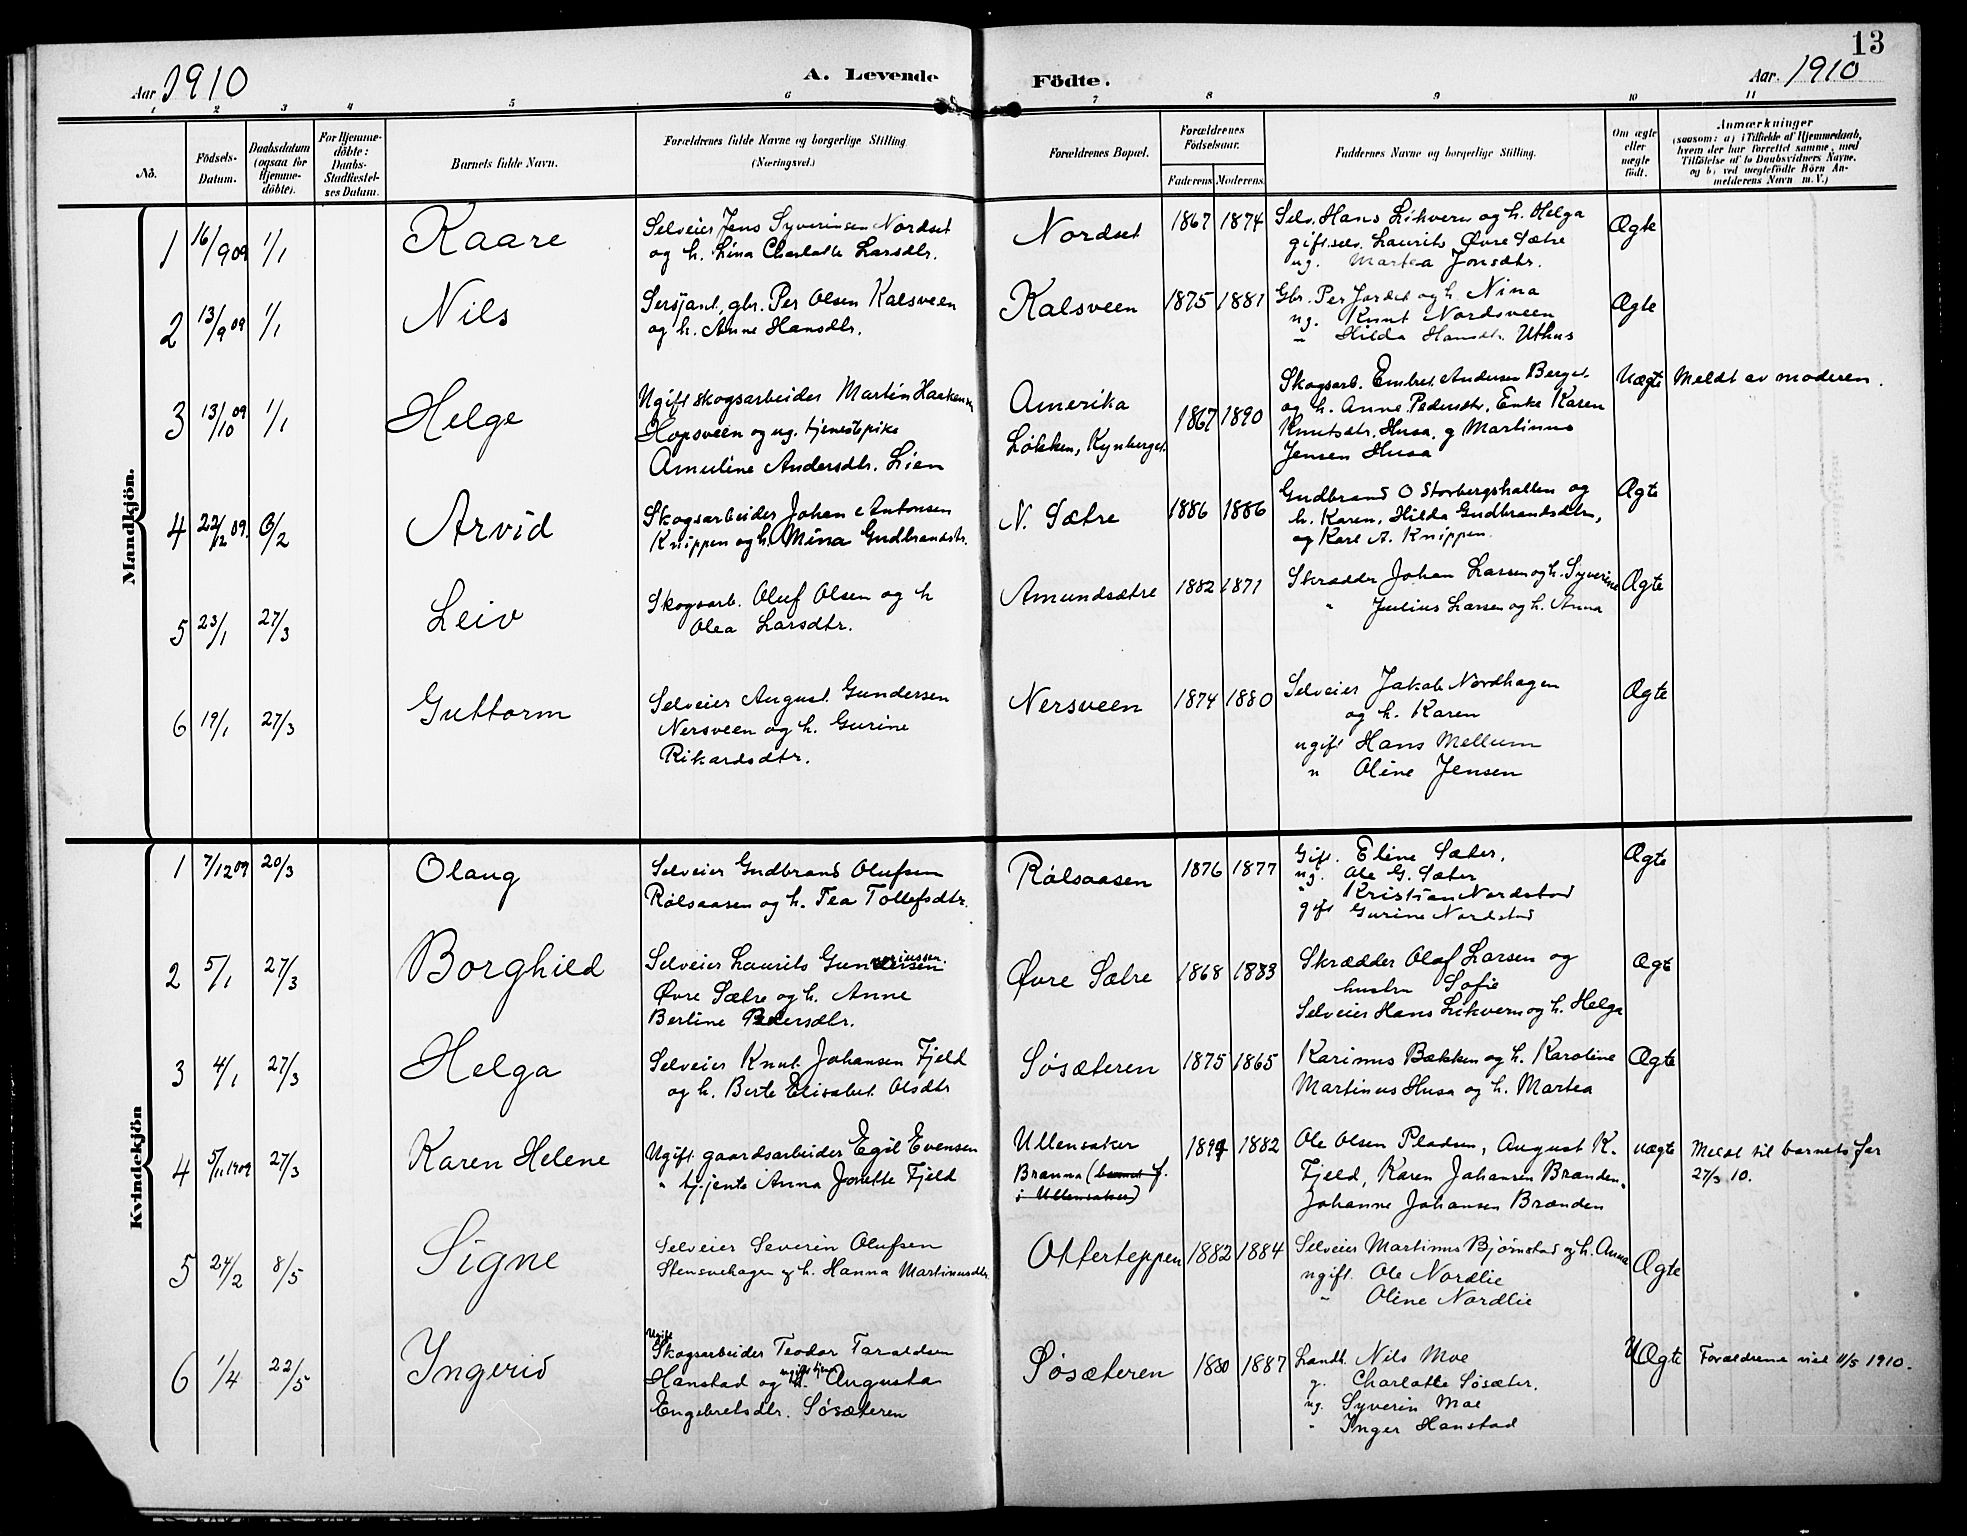 13
Aar 1910
A. Levende Födte.
Aar. 1910
1 2 3 4 5 6 7 8 9 10 11
No.
Födsels-Datum.
Daabsdatum (ogsaa for Hjemme-döbte).
For Hjemme-döbte: Daabs-Stadfæstel-ses Datum.
Barnets fulde Navn.
Forældrenes fulde Navne og borgerlige Stilling (Næringsvei.)
Forældrenes Bopæl.
Forældrenes Födselsaar.
Faderens Moderens
Faddernes Navne og borgerlige Stilling.
Om ægte eller uægte födt.
Anmærkninger
(saasom: a) i Tilfælde af Hjemmedaab,
hvem der har forrettet samme, med
Tilföielse af to Daabsvidners Navne.
og b) ved uægtefödte Börn An-
melderens Navn m. V.)
Mandkjön.
1 16/9 09 1/1 Kaare
Selveier Jens Syverinsen Nordset
og h. Lina Charlotte Larsdtr.
Nordset 1867 1874
Selv. Hans Likvern og h. Helga
gift selv. Laurits Øvre Sætre
ug. Martea Jonsdtr.
Ægte
2 13/9 09 1/1 Nils
Sersjant, gbr. Per Olsen Kalsveen
og h. Anne Hansdtr.
Kalsveen 1875 1881
Gbr. Per Jordet og h. Nina
ug. Knut Nordsveen
" Hilda Hansdtr. Uthus
Ægte
3 13/10 09 1/1 Helge
Ugift skogsarbeider Martin Haakensen
Hopsveen og ug. tjenestepike
Amuline Andersdtr. Lien
Amerika
Løkken, Kynberget.
1867 1890
Skogsarb. Embret Andersen Berget
og h. Anne Pedersdtr, Enke Karen
Knutsdtr. Husa, g Martinus
Jensen Husa
Uægte
Meldt av moderen.
4 22/12 09. 6/2 Arvid
Skogsarbeider Johan Antonsen
Knippen og h. Mina Gudbrandsdtr.
N. Sætre 1886 1886
Gudbrand O Storbergshallen og
h. Karen, Hilda Gudbrandsdtr,
og Karl A. Knippen.
Ægte
5 23/1 27/3 Leiv
Skogsarb. Oluf Olsen og h
Olea Larsdtr.
Amundsætre 1882 1871
Skrædder Johan Larsen og h. Syverine
" Julius Larsen og h. Anna
Ægte
6 19/1 27/3 Guttorm
Selveier August Gundersen
Nersveen og h. Gurine
Rikardsdtr.
Nersveen 1874 1880
Selveier Jakob Nordhagen
og h. Karen
ugift Hans Mellum
" Oline Jensen
Ægte
Kvindekjön
1 7/12 09 20/3 Olaug
Selveier Gudbrand Olufsen
Rølsaasen og h. Tea Tollefsdtr.
Rølsaasen 1876 1877
Gift. Eline Sæter,
ug. Ole G. Sæter
" Kristian Nordstad
gift Gurine Nordstad
Ægte
2 5/1 27/3 Borghild
Selveier Laurits Gunderiussen.
Øvre Sætre og h. Anne
Berline Pedersdtr.
Øvre Sætre 1868 1883
Skrædder Olaf Larsen og
hustru Sofie
Selveier Hans Likvern og h. Helga
Ægte
3 4/1 27/3 Helga
Selveier Knut Johansen Fjeld
og h. Berte Elisabet Olsdtr
Søsæteren 1875 1865
Karinus Bækken og h. Karoline
Martinus Husa og h. Martea
Ægte
4 5/11 1909 27/3 Karen Helene
Ugift gaardsarbeider Egil Evensen
" tj.jente Anna Jonette Fjeld
Ullensaker
Brænna (barnet f.
i Ullensaker)
1894 1882
Ole Olsen Pladsen, August K.
Fjeld, Karen Johansen Brænden,
Johanne Johansen Brænden
uægte
Meldt til barnets far
27/3 10.
5 24/2 8/5 Signe
Selveier Severin Olufsen
Stensvehagen og h. Hanna Martinusdtr.
Otterteppen 1882 1884
Selveier Martinus Bjørnstad og h. Anna
ugift. Ole Nordlie
" Oline Nordlie
Ægte
6 1/4 22/5 Ingerid
Ugift
Skogsarbeider Teodor Taraldsen
Hanstad og ugift tjener Augusta
Engebretsdtr. Søsæteren
Søsæteren 1880 1887
Landh. Nils Moe
g. Charlotte Søsæter.
ug. Syverin Moe
" Inger Hanstad
UÆgte
Forældrene viet 11/5 1910.